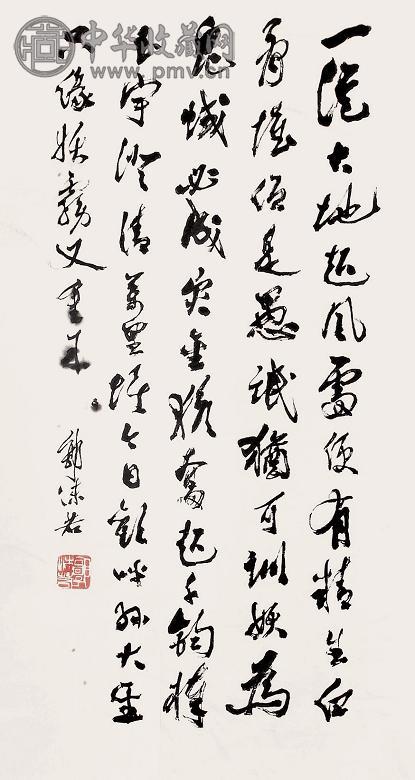 中华收藏网
www.pmv.cn
一從大地起風雷便有精生白
骨堆僧是愚氓猶可訓妖為
鬼蜮必成灾金猴奮起千鈞棒
玉宇澄清萬里埃今日歡呼孫大聖
只緣妖霧又重來
郭沫若